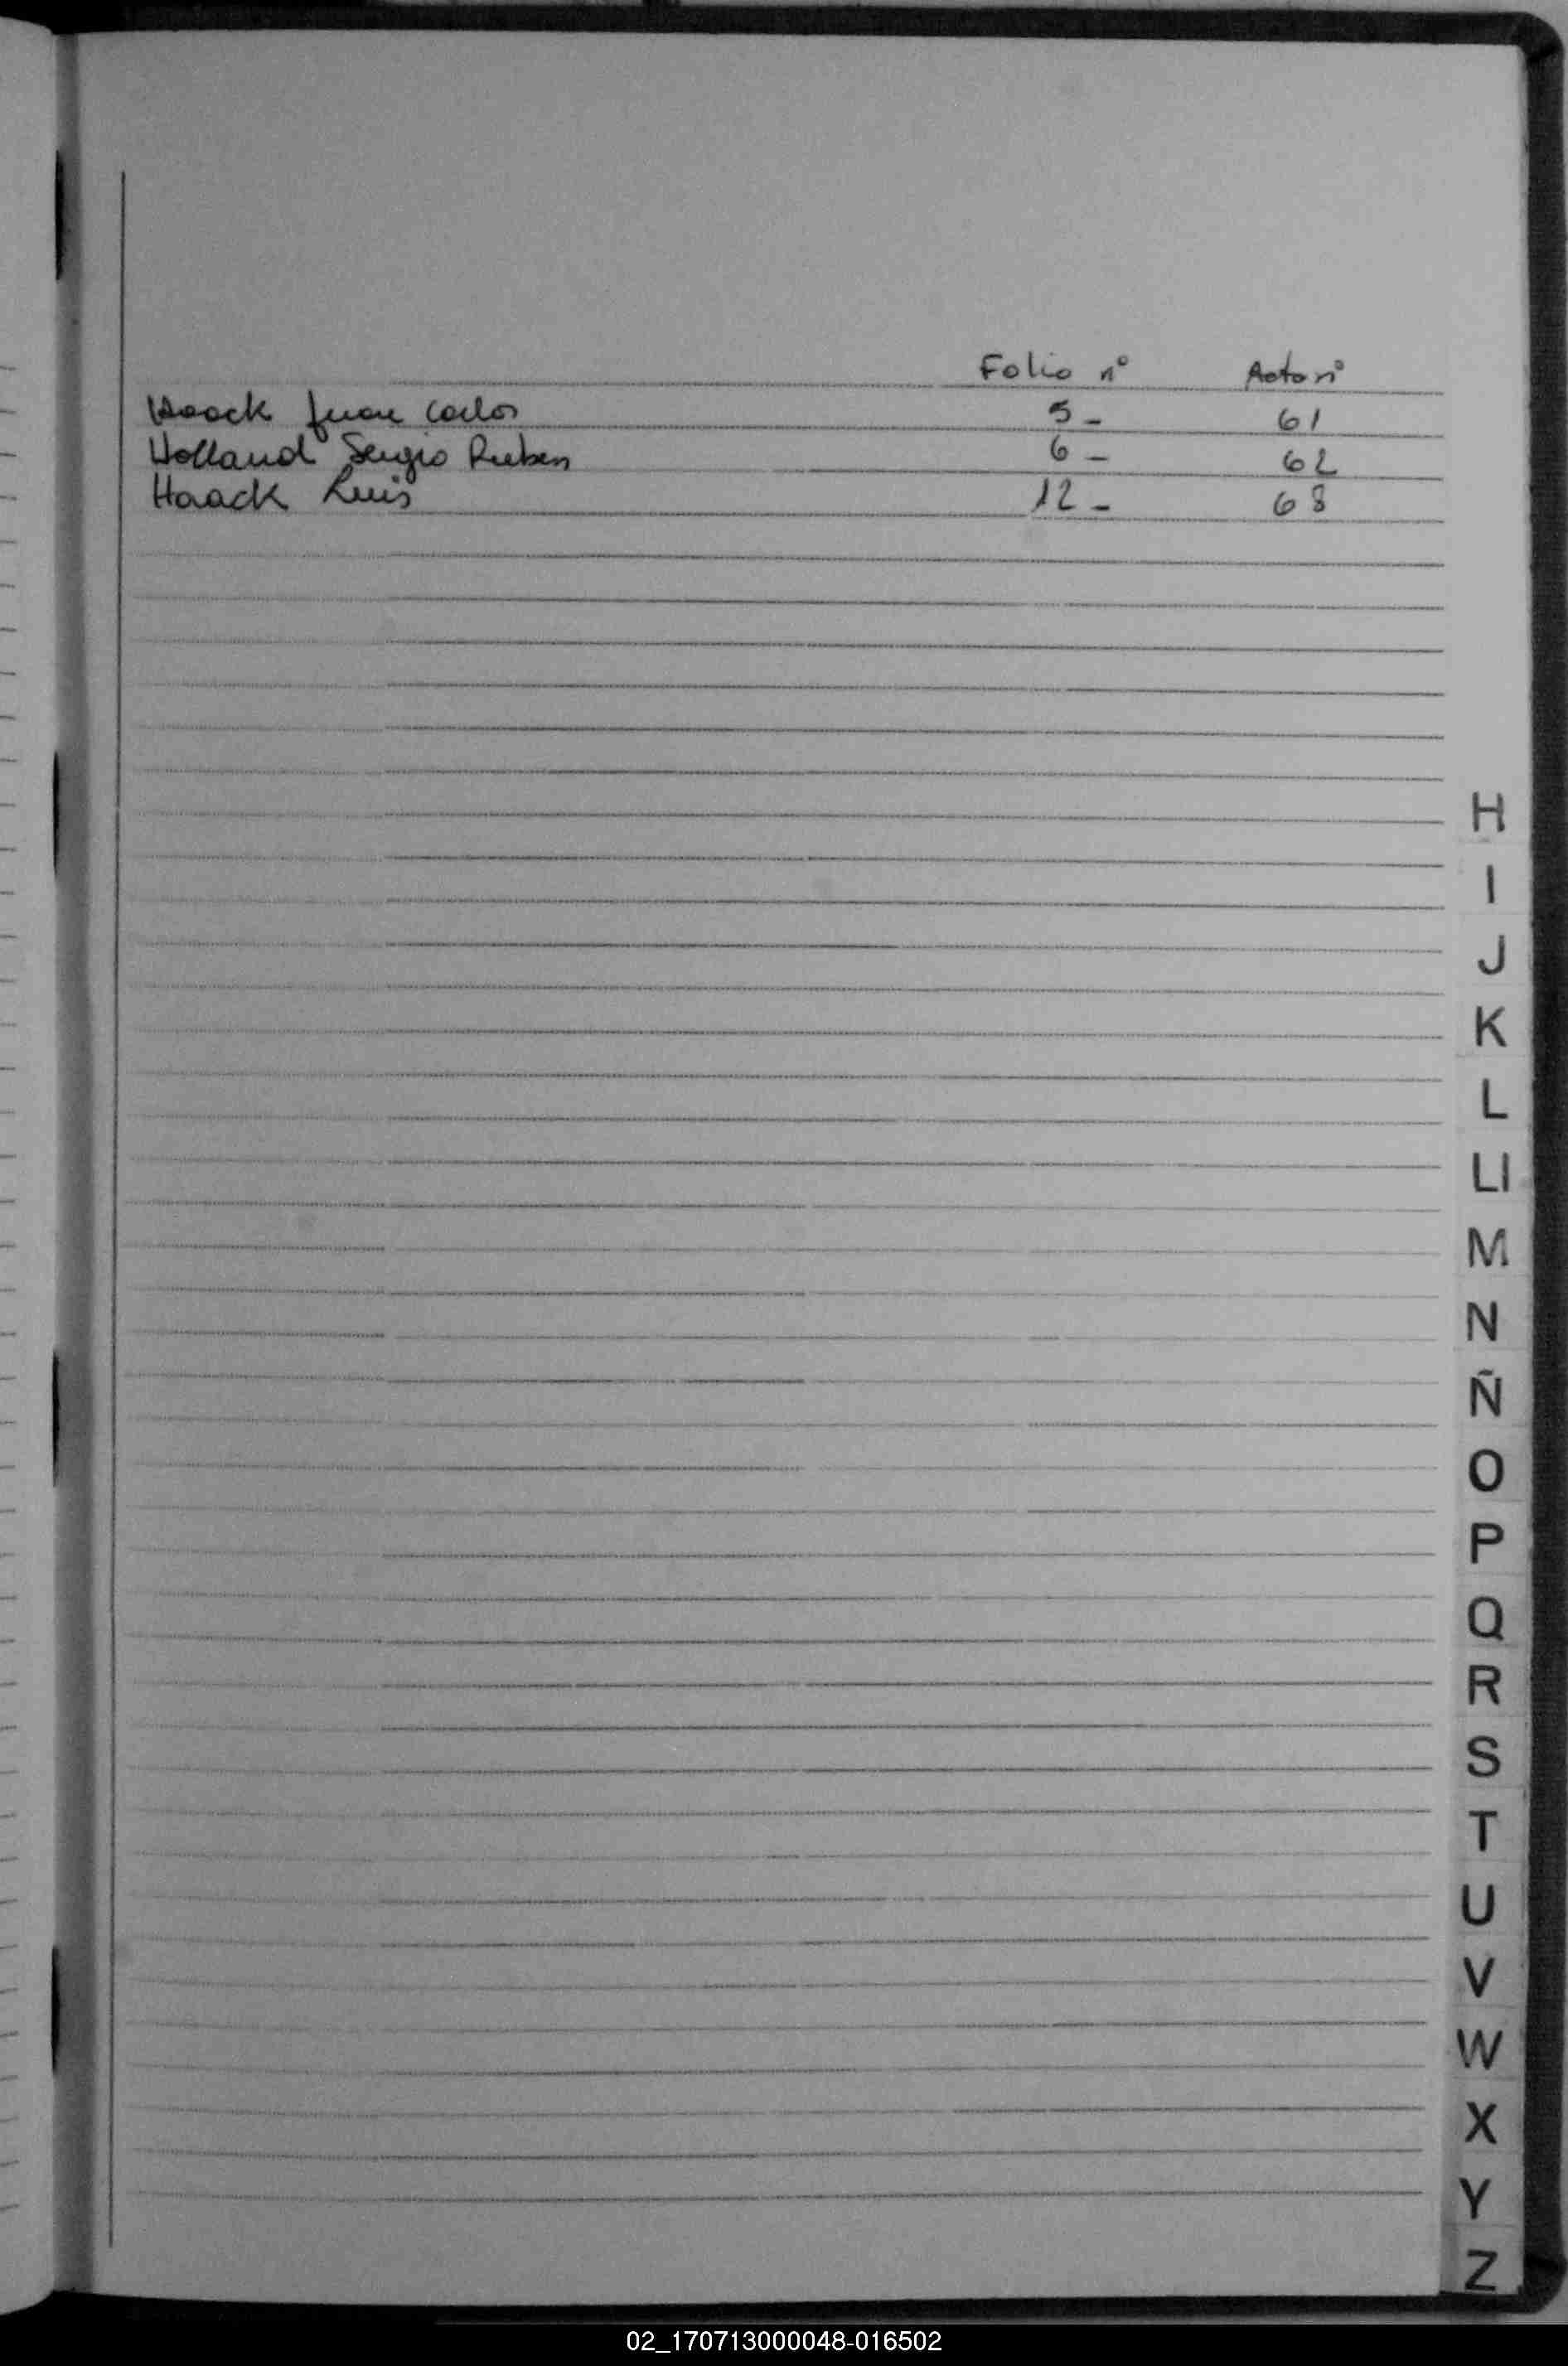 Folio nº Acta nº
Haack Juan Carlos 5- 61
Holland Sergio Ruben 6- 62
Haack Luis 12- 68
H
I
J
K
L
Ll
M
N
Ñ
O
P
Q
R
S
T
U
V
W
X
Y
Z
02_170713000048-016502